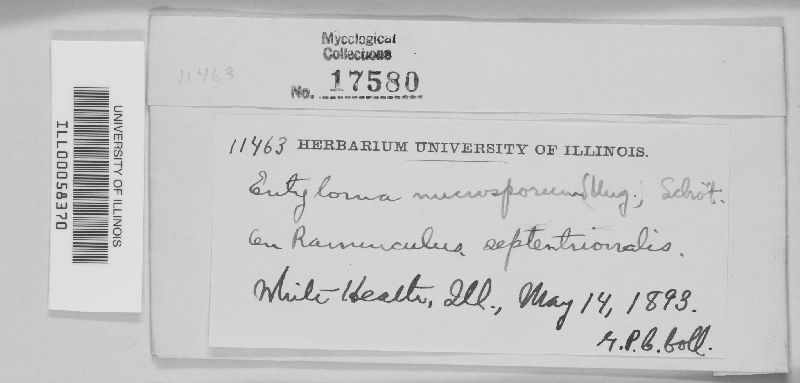 Mycological
Collections
No. 17580
11463
UNIVERSITY OF ILLINOIS
ILL00058370
11463 HERBARIUM UNIVERSITY OF ILLINOIS.
Entyloma microsporum (Ung.) Schröt.
On Ranunculus septentrionalis.
White Heath, Ill., May 14, 1893.
G.P.C. Coll.